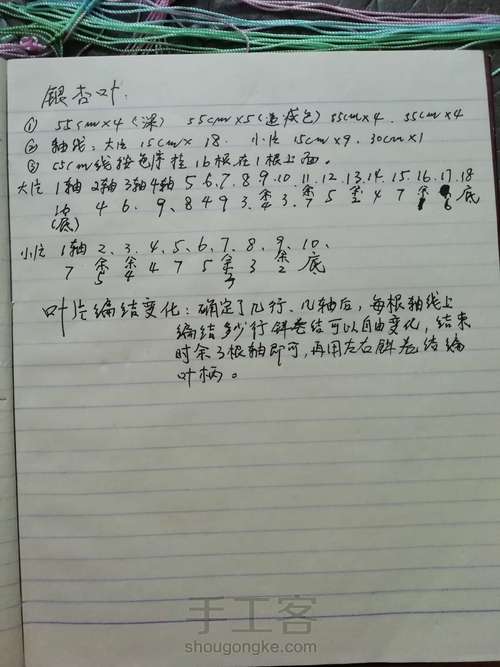 银杏叶:
① 55cm×4(深) 55cm×5(渐成色) 55cm×4、55cm×4
② 轴线:大片 15cm× 18. 小片 15cm×9、30cm×1
③ 55cm线按色序挂16根在1根上面。
大片 1轴 2轴 3轴 4轴 5、6、7、8、9、10、11、12、13、14、15、16、17、18
16 4 6、9、8 4 9 3、余4 3、余7 5 余 4 7 余 底
(底)
小片 1轴 2、3、4、5、6、7、8、9、10、
7 余5 余4 4 7 5 余3 3 余2 底
叶片编结变化:确定了几行、几轴后,每根轴线上
编结多少行斜卷结可以自由变化,结束
时余3根轴即可,再用左右斜卷结编
叶柄。
手工客
shougongke.com